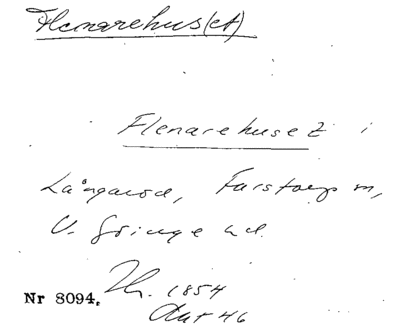 Flenarehus(et)
Flenarehuset i
Långaröd, Farstorps sn,
V. Göinge hd.
Nr 8094. Th. 1854
Aut 46